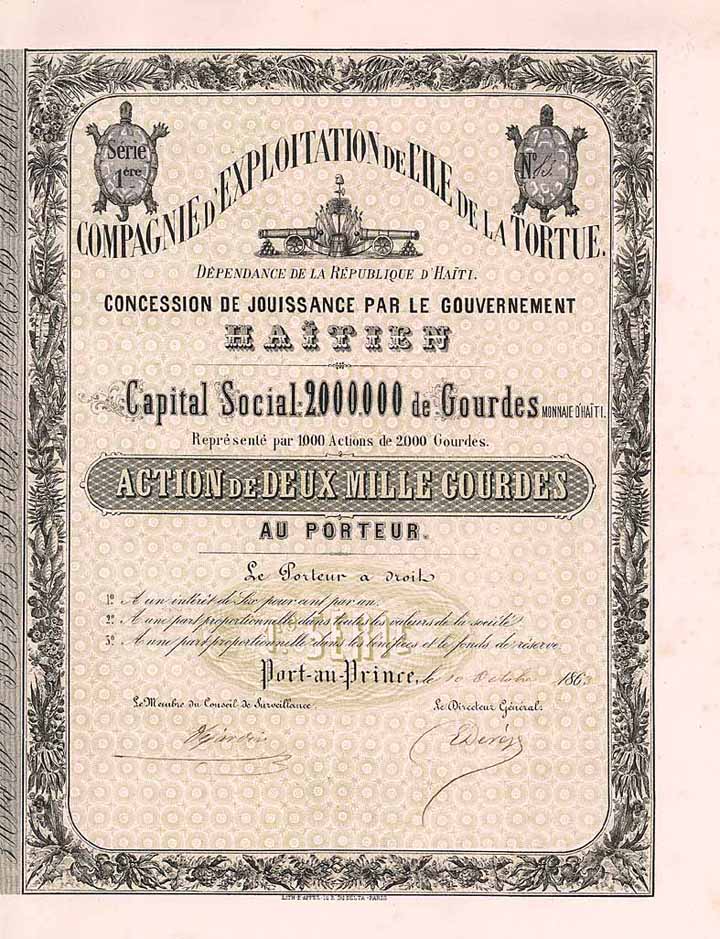 Série
1ère
Nº
COMPAGNIE D'EXPLOITATION DE L'ILE DE LA TORTUE.
DÉPENDANCE DE LA RÉPUBLIQUE D'HAÏTI.
CONCESSION DE JOUISSANCE PAR LE GOUVERNEMENT
HAÏTIEN
Capital Social: 2000.000 de Gourdes MONNAIE D'HAÏTI.
Représenté par 1000 Actions de 2000 Gourdes.
ACTION DE DEUX MILLE GOURDES
AU PORTEUR.
Le Porteur a droit
1º A un intérêt de Six pour cent par an.
2º A une part proportionnelle dans toutes les valeurs de la société.
3º A une part proportionnelle dans les bénéfices et le fonds de réserve.
1e SÉRIE
Port-au-Prince, le 10 Octobre 1863
Le Membre du Conseil de Surveillance
Le Directeur Général